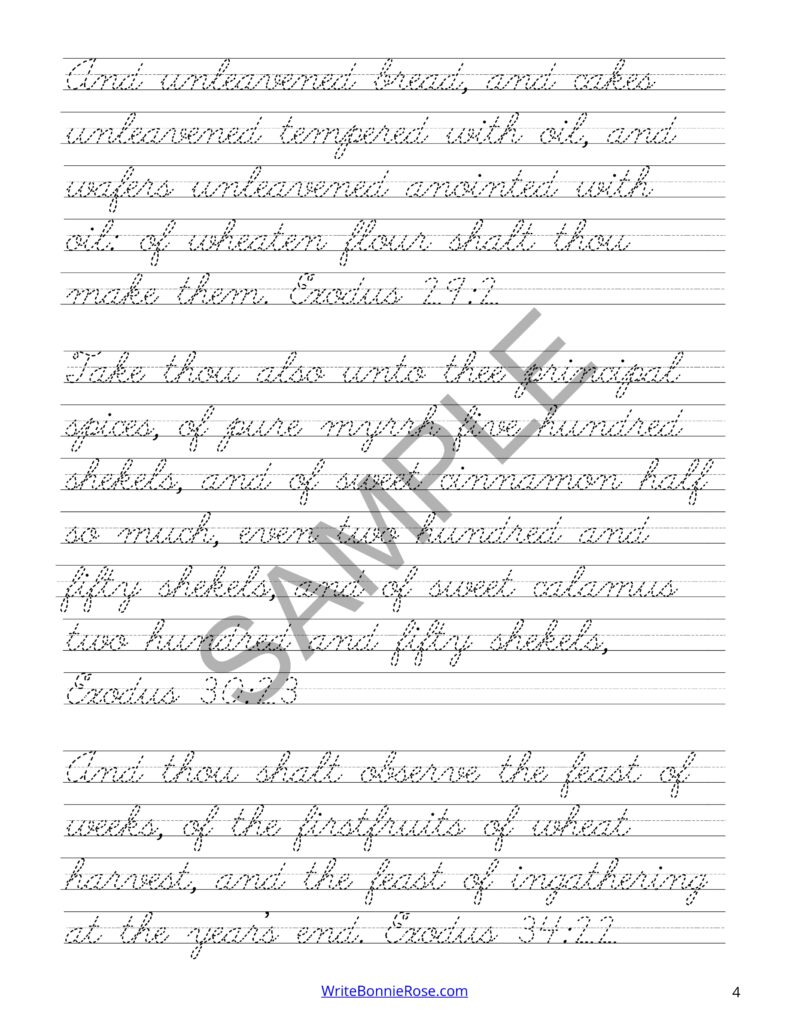 And unleavened bread, and cakes
unleavened tempered with oil, and
wafers unleavened anointed with
oil: of wheaten flour shalt thou
make them. Exodus 29:2
Take thou also unto thee principal
spices, of pure myrrh five hundred
shekels, and of sweet cinnamon half
so much, even two hundred and
fifty shekels, and of sweet calamus
two hundred and fifty shekels,
Exodus 30:23
And thou shalt observe the feast of
weeks, of the firstfruits of wheat
harvest, and the feast of ingathering
at the year's end. Exodus 34:22
SAMPLE
WriteBonnieRose.com
4